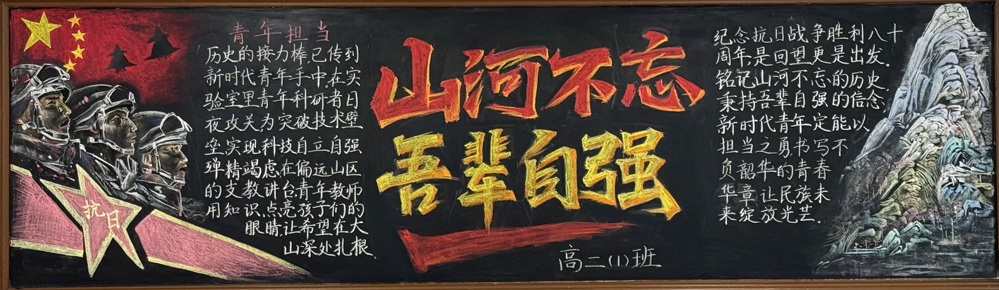 青年担当
历史的接力棒已传到
新时代青年手中,在实
验室里青年科研者日
夜攻关为突破技术壁
垒实现科技自立自强
殚精竭虑在偏远山区
的支教讲台青年教师
用知识点亮孩子们的
眼睛让希望在大
山深处扎根
抗日
山河不忘
吾辈自强
高二(1)班
纪念抗日战争胜利八十
周年,是回望更是出发.
铭记山河不忘的历史
秉持吾辈自强的信念
新时代青年定能以
担当之勇书写不
负韶华的青春
华章让民族未
来绽放光芒.